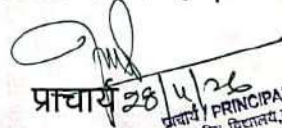 प्राचार्य 28/4/26
प्राचार्य / PRINCIPA
विद्यालय,